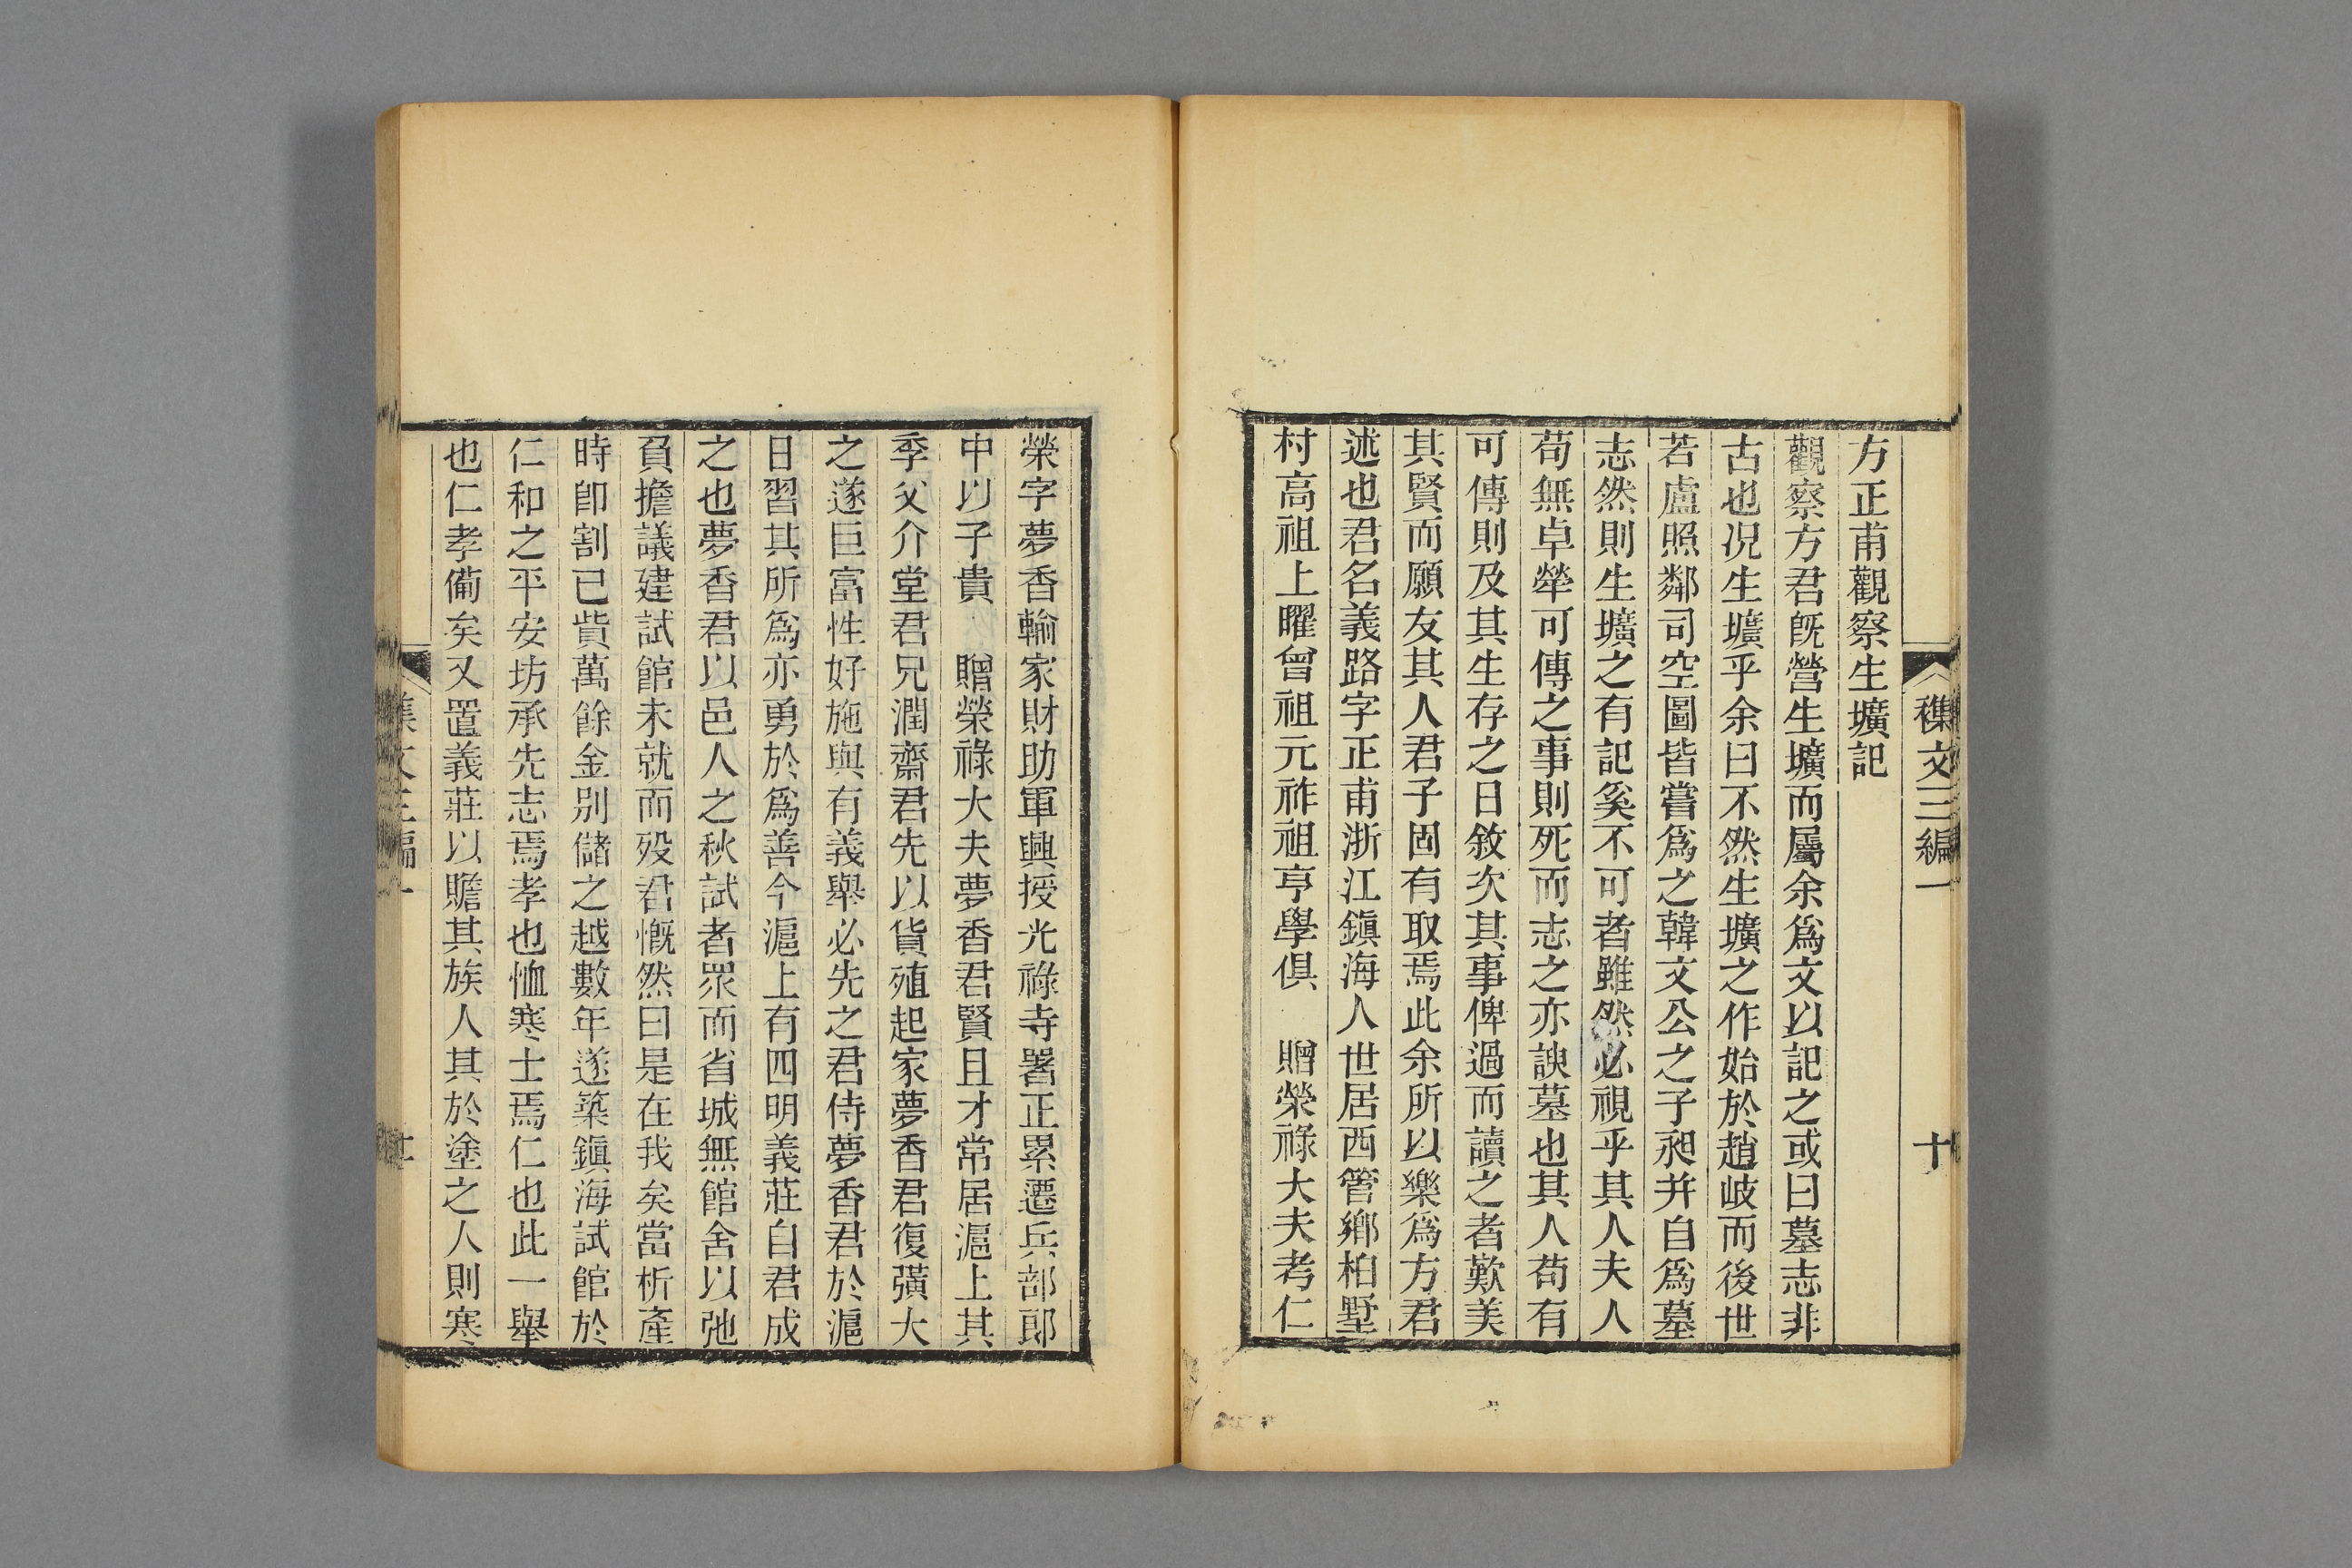 襍文三編一
十
方正甫觀察生壙記
觀察方君旣營生壙而屬余爲文以記之或曰墓志非
古也况生壙乎余曰不然生壙之作始於趙岐而後世
若盧照鄰司空圖皆嘗爲之韓文公之子昶并自爲墓
志然則生壙之有記奚不可者雖然必視乎其人夫人
苟無卓犖可傳之事則死而志之亦諛墓也其人苟有
可傳則及其生存之日敘次其事俾過而讀之者歎美
其賢而願友其人君子固有取焉此余所以樂爲方君
述也君名義路字正甫浙江鎭海人世居西管鄉柏墅
村高祖上曜曾祖元祚祖亨學俱 贈榮祿大夫考仁
榮字夢香輸家財助軍興授光祿寺署正累遷兵部郎
中以子貴 贈榮祿大夫夢香君賢且才常居滬上其
季父介堂君兄潤齋君先以貨殖起家夢香君復彍大
之遂巨富性好施與有義舉必先之君侍夢香君於滬
日習其所爲亦勇於爲善今滬上有四明義莊自君成
之也夢香君以邑人之秋試者眾而省城無館舍以弛
負擔議建試館未就而歿君慨然曰是在我矣當析產
時卽割已貲萬餘金別儲之越數年遂築鎭海試館於
仁和之平安坊承先志焉孝也恤寒士焉仁也此一舉
也仁孝備矣又置義莊以贍其族人其於塗之人則寒
集文三編一